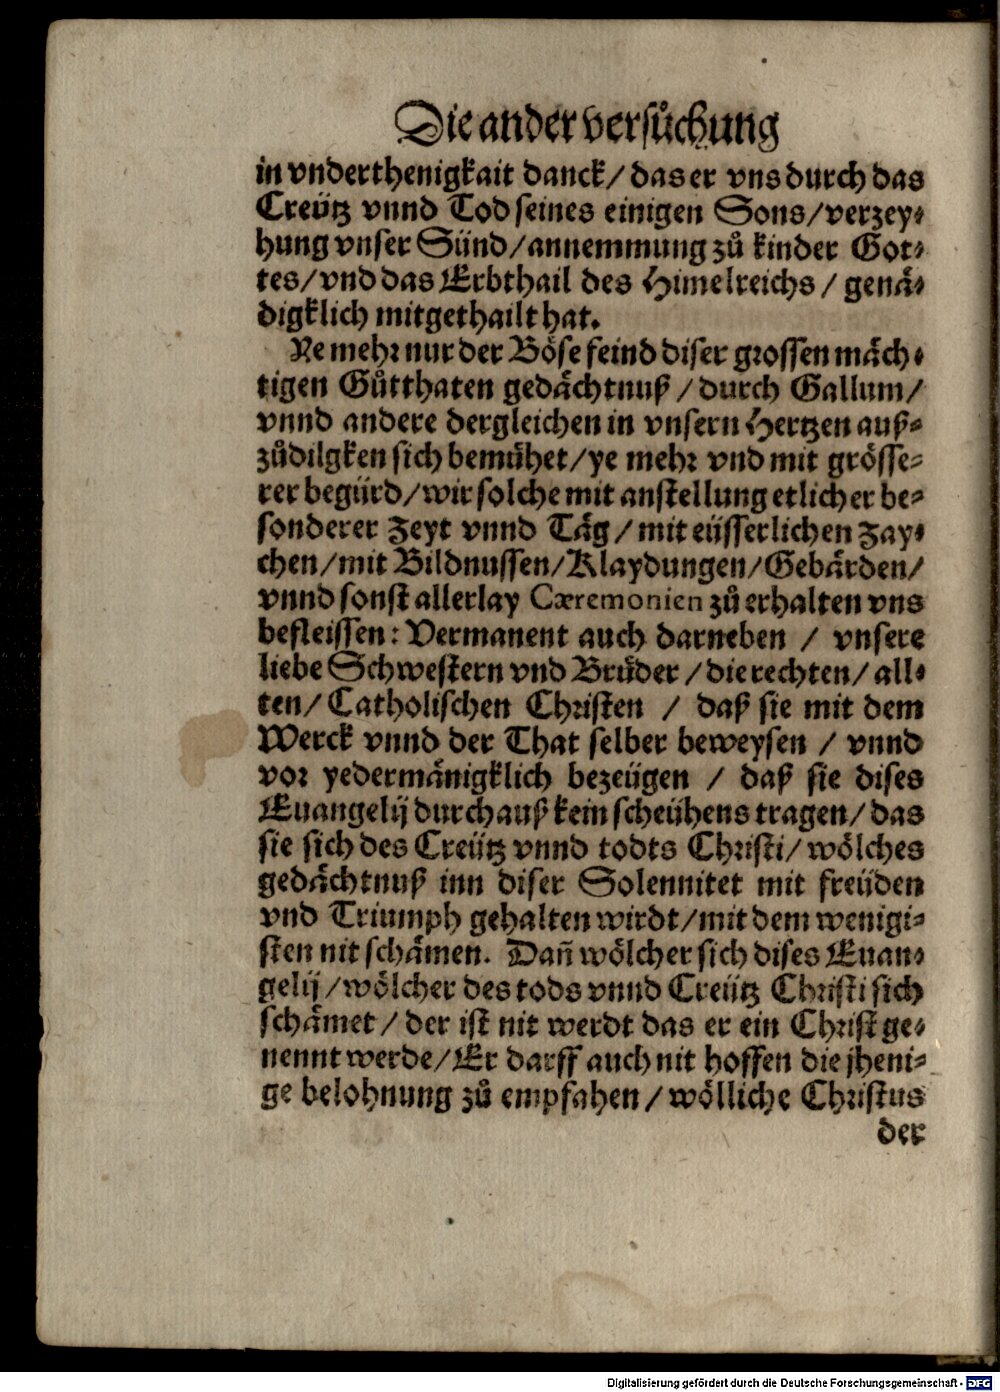 Die ander versůchung
in vnderthenigkait danck/ das er vns durch das
Creütz vnnd Tod seines einigen Sons/ verzey⸗
hung vnser Sünd/ annemmung zů kinder Got⸗
tes/ vnd das Erbthail des Himelreichs/ genä⸗
digklich mitgethailt hat.
Ye mehr nur der Böse feind diser grossen mäch⸗
tigen Gůtthaten gedächtnuß/ durch Gallum/
vnnd andere dergleichen in vnsern Hertzen auß⸗
zůdilgken sich bemühet/ ye mehr vnd mit grösse⸗
rer begürd/ wir solche mit anstellung etlicher be⸗
sonderer Zeyt vnnd Täg/ mit eüsserlichen Zay⸗
chen/ mit Bildnussen/ Klaydungen/ Gebärden/
vnnd sonst allerlay Cæremonien zů erhalten vns
befleissen: Vermanent auch darneben / vnsere
liebe Schwestern vnd Brüder/ die rechten/ all⸗
ten/ Catholischen Christen / daß sie mit dem
Werck vnnd der That selber beweysen / vnnd
vor yedermänigklich bezeügen / daß sie dises
Euangelij durchauß kein scheühens tragen/ das
sie sich des Creütz vnnd todts Christi/ wölches
gedächtnuß inn diser Solennitet mit freüden
vnd Triumph gehalten wirdt/ mit dem wenigi⸗
sten nit schämen. Dañ wölcher sich dises Euan⸗
gelij/ wölcher des tods vnnd Creütz Christi sich
schämet/ der ist nit werdt das er ein Christ ge⸗
nennt werde/ Er darff auch nit hoffen die jheni⸗
ge belohnung zů empfahen/ wölliche Christus
der
Digitalisierung gefördert durch die Deutsche Forschungsgemeinschaft - DFG